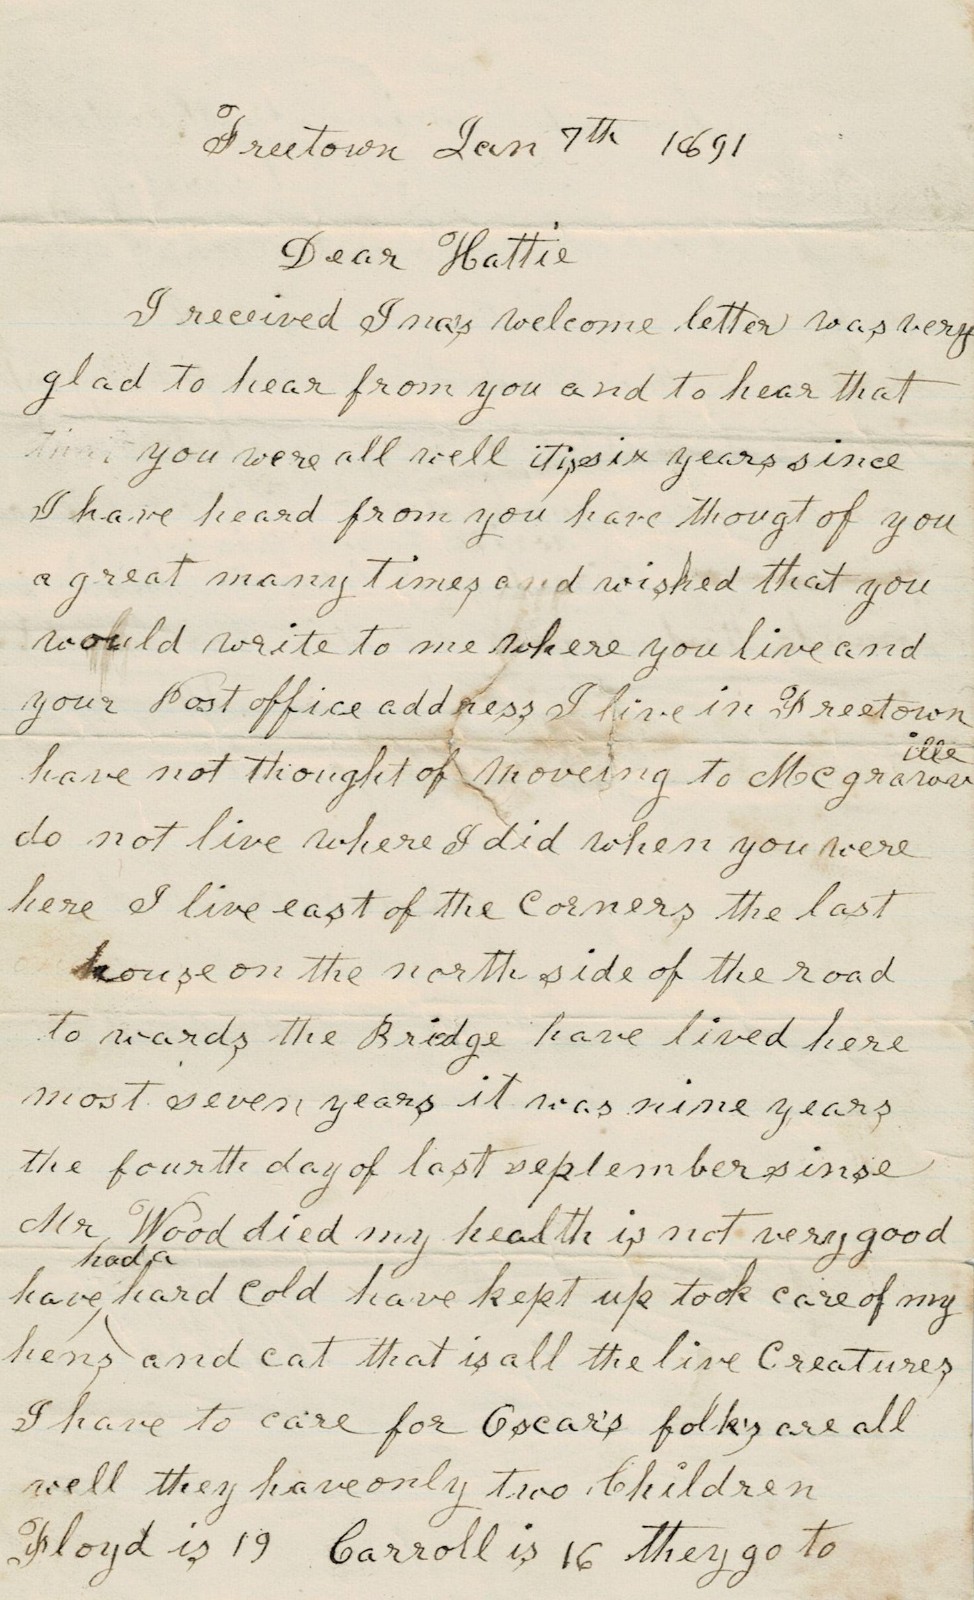 Freetown Jan 7th 1891
Dear Hattie
I received Ina's welcome letter was very
glad to hear from you and to hear that
you were all well it is six years since
I have heard from you have thougt of you
a great many times and wished that you
would write to me where you live and
your Post office address I live in Freetown
have not thought of moveing to Mcgrawville
do not live where I did when you were
here I live east of the Corners the last
house on the north side of the road
to wards the Bridge have lived here
most seven years it was nine years
the fourth day of last september sinse
Mr Wood died my health is not very good
have had a hard cold have kept up took care of my
hens and cat that is all the live Creatures
I have to care for Oscar's folks are all
well they have only two Children
Floyd is 19 Carroll is 16 they go to